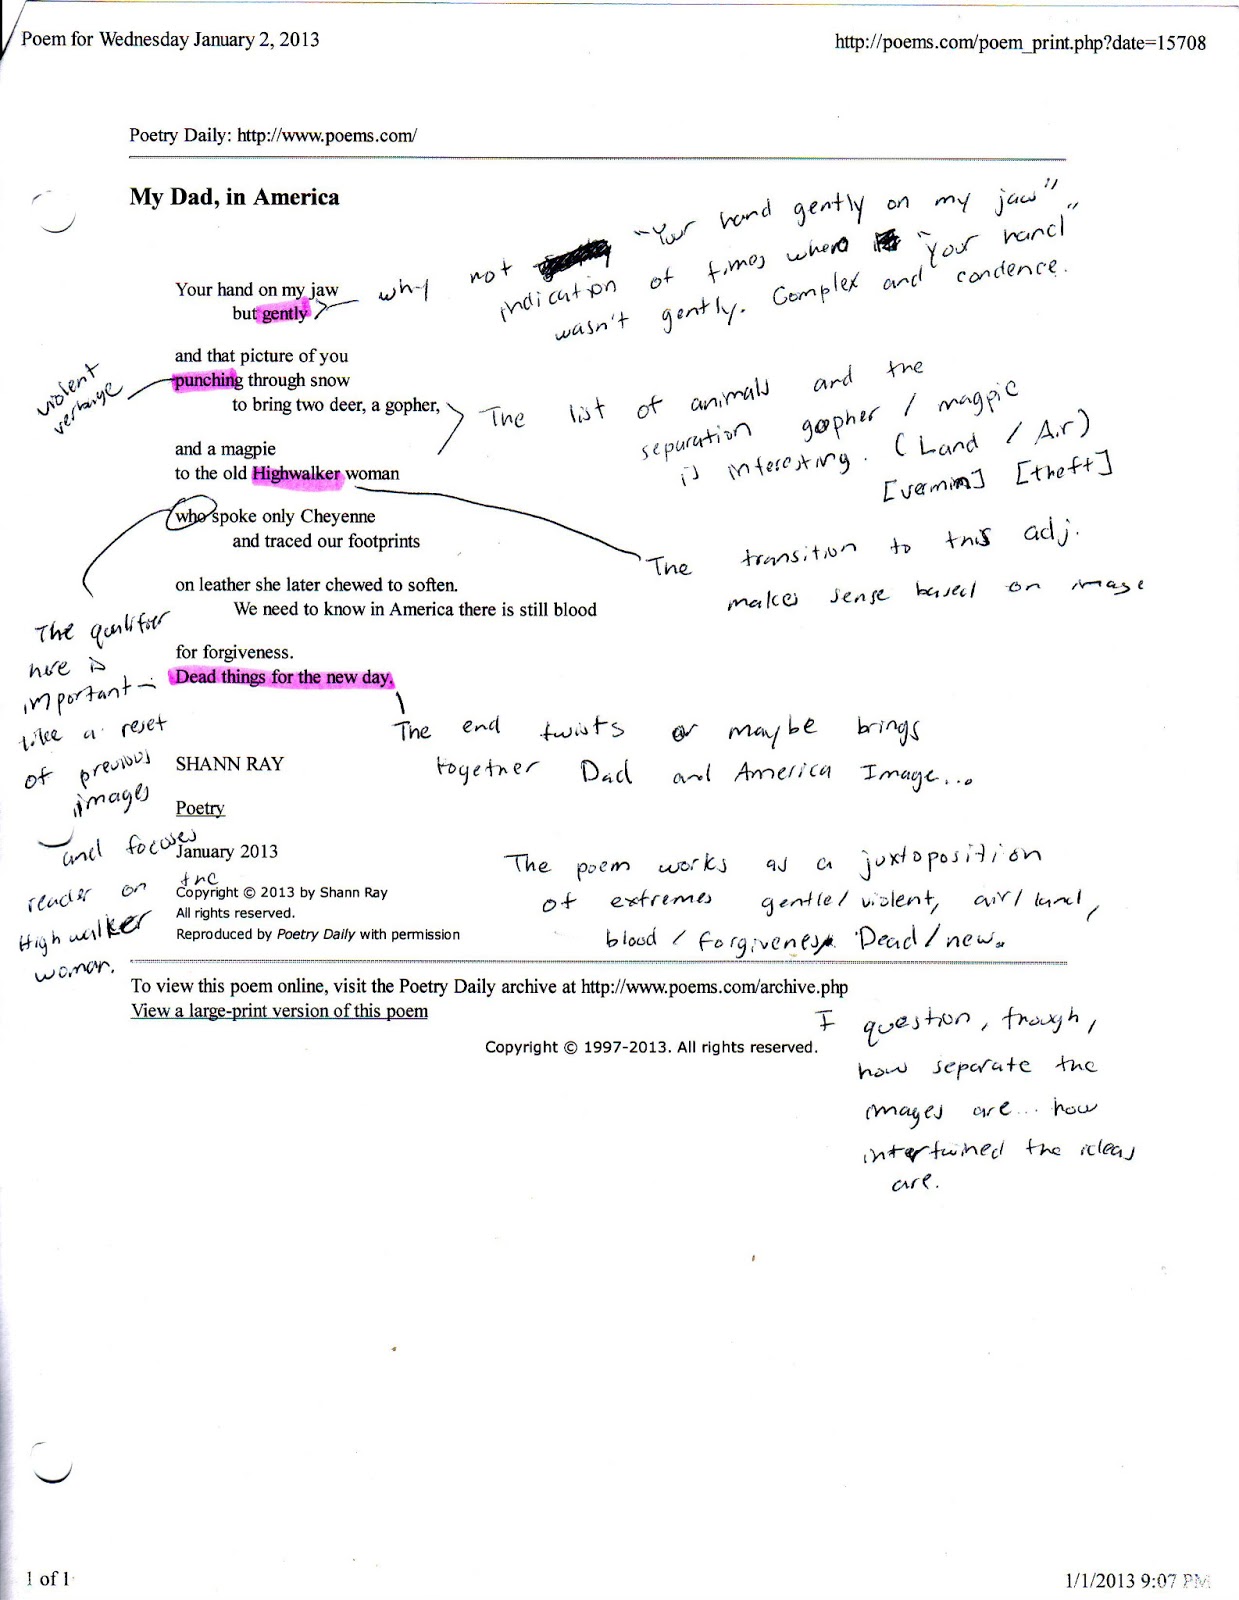 Poem for Wednesday January 2, 2013
http://poems.com/poem_print.php?date=15708
Poetry Daily: http://www.poems.com/
My Dad, in America
Your hand on my jaw
but gently
why not "Your hand gently on my jaw"
indication of times where "Your hand"
wasn't gently. Complex and condence.
and that picture of you
punching through snow
to bring two deer, a gopher,
violent
verbage
The list of animals and the
separation gopher / magpie
is interesting. (Land / Air)
[vermin] [theft]
and a magpie
to the old Highwalker woman
who spoke only Cheyenne
and traced our footprints
The transition to this adj.
makes sense based on image
on leather she later chewed to soften.
We need to know in America there is still blood
for forgiveness.
Dead things for the new day.
The qualifier
here is
important –
like a reset
of previous
images
and focuses
reader on the
Highwalker
woman.
The end twists or maybe brings
together Dad and America Image...
SHANN RAY
Poetry
January 2013
Copyright © 2013 by Shann Ray
All rights reserved.
Reproduced by Poetry Daily with permission
The poem works as a juxtoposition
of extremes gentle/violent, air/land,
blood/forgiveness. Dead/new.
To view this poem online, visit the Poetry Daily archive at http://www.poems.com/archive.php
View a large-print version of this poem
Copyright © 1997-2013. All rights reserved.
I question, though,
how separate the
images are... how
intertwined the ideas
are.
1 of 1
1/1/2013 9:07 PM